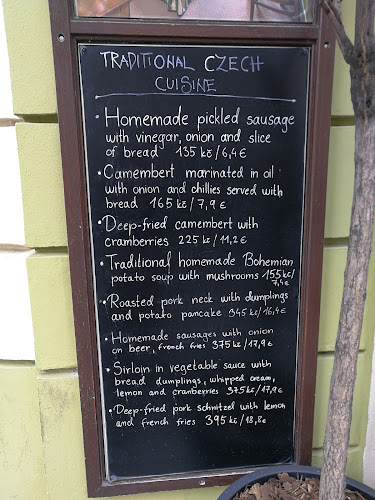 TRADITIONAL CZECH
CUISINE
• Homemade pickled sausage
with vinegar, onion and slice
of bread 135 kč/6,4€
• Camembert marinated in oil
with onion and chillies served with
bread 165 kč/7,9€
• Deep-fried camembert with
cranberries 225 kč/11,2€
• Traditional homemade Bohemian
potato soup with mushrooms 155 kč/
7,4€
• Roasted pork neck with dumplings
and potato pancake 345 kč/16,4€
• Homemade sausages with onion
on beer, french fries 375 kč/17,9€
• Sirloin in vegetable sauce with
bread dumplings, whipped cream,
lemon and cranberries 375 kč/17,9€
• Deep-fried pork schnitzel with lemon
and french fries 395 kč/18,8€